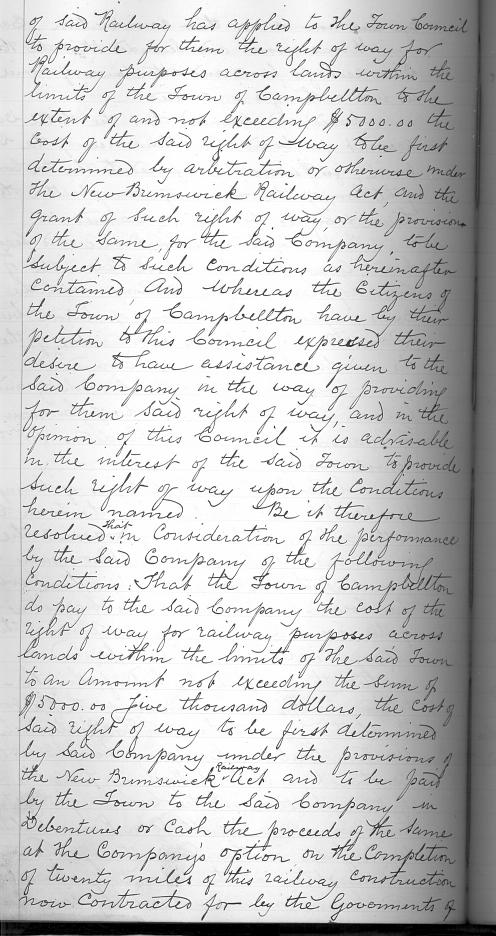 of said Railway has applied to the Town Council
to provide for them the right of way for
Railway purposes across lands within the
limits of the Town of Campbellton to the
extent of and not exceeding $5000.00 the
Cost of the said right of way to be first
determined by arbitration or otherwise under
the New Brunswick Railway Act, and the
grant of such right of way, or the provision
of the same, for the said Company, to be
subject to such conditions as hereinafter
contained And whereas the Citizens of
the Town of Campbellton have by their
petition to this Council expressed their
desire to have assistance given to the
said Company in the way of providing
for them said right of way, and in the
opinion of this Council it is advisable
in the interest of the said Town to provide
such right of way upon the conditions
herein named Be it therefore
resolved that in Consideration of the performance
by the said Company of the following
conditions: That the Town of Campbellton
do pay to the said Company the cost of the
right of way for railway purposes across
lands within the limits of the said Town
to an Amount not exceeding the sum of
$5000.00 five thousand dollars, the cost of
said right of way to be first determined
by said Company under the provisions of
the New Brunswick Railway Act and to be paid
by the Town to the said Company in
Debentures or Cash the proceeds of the same
at the Company's option on the Completion
of twenty miles of this railway construction
now contracted for by the Goverments of